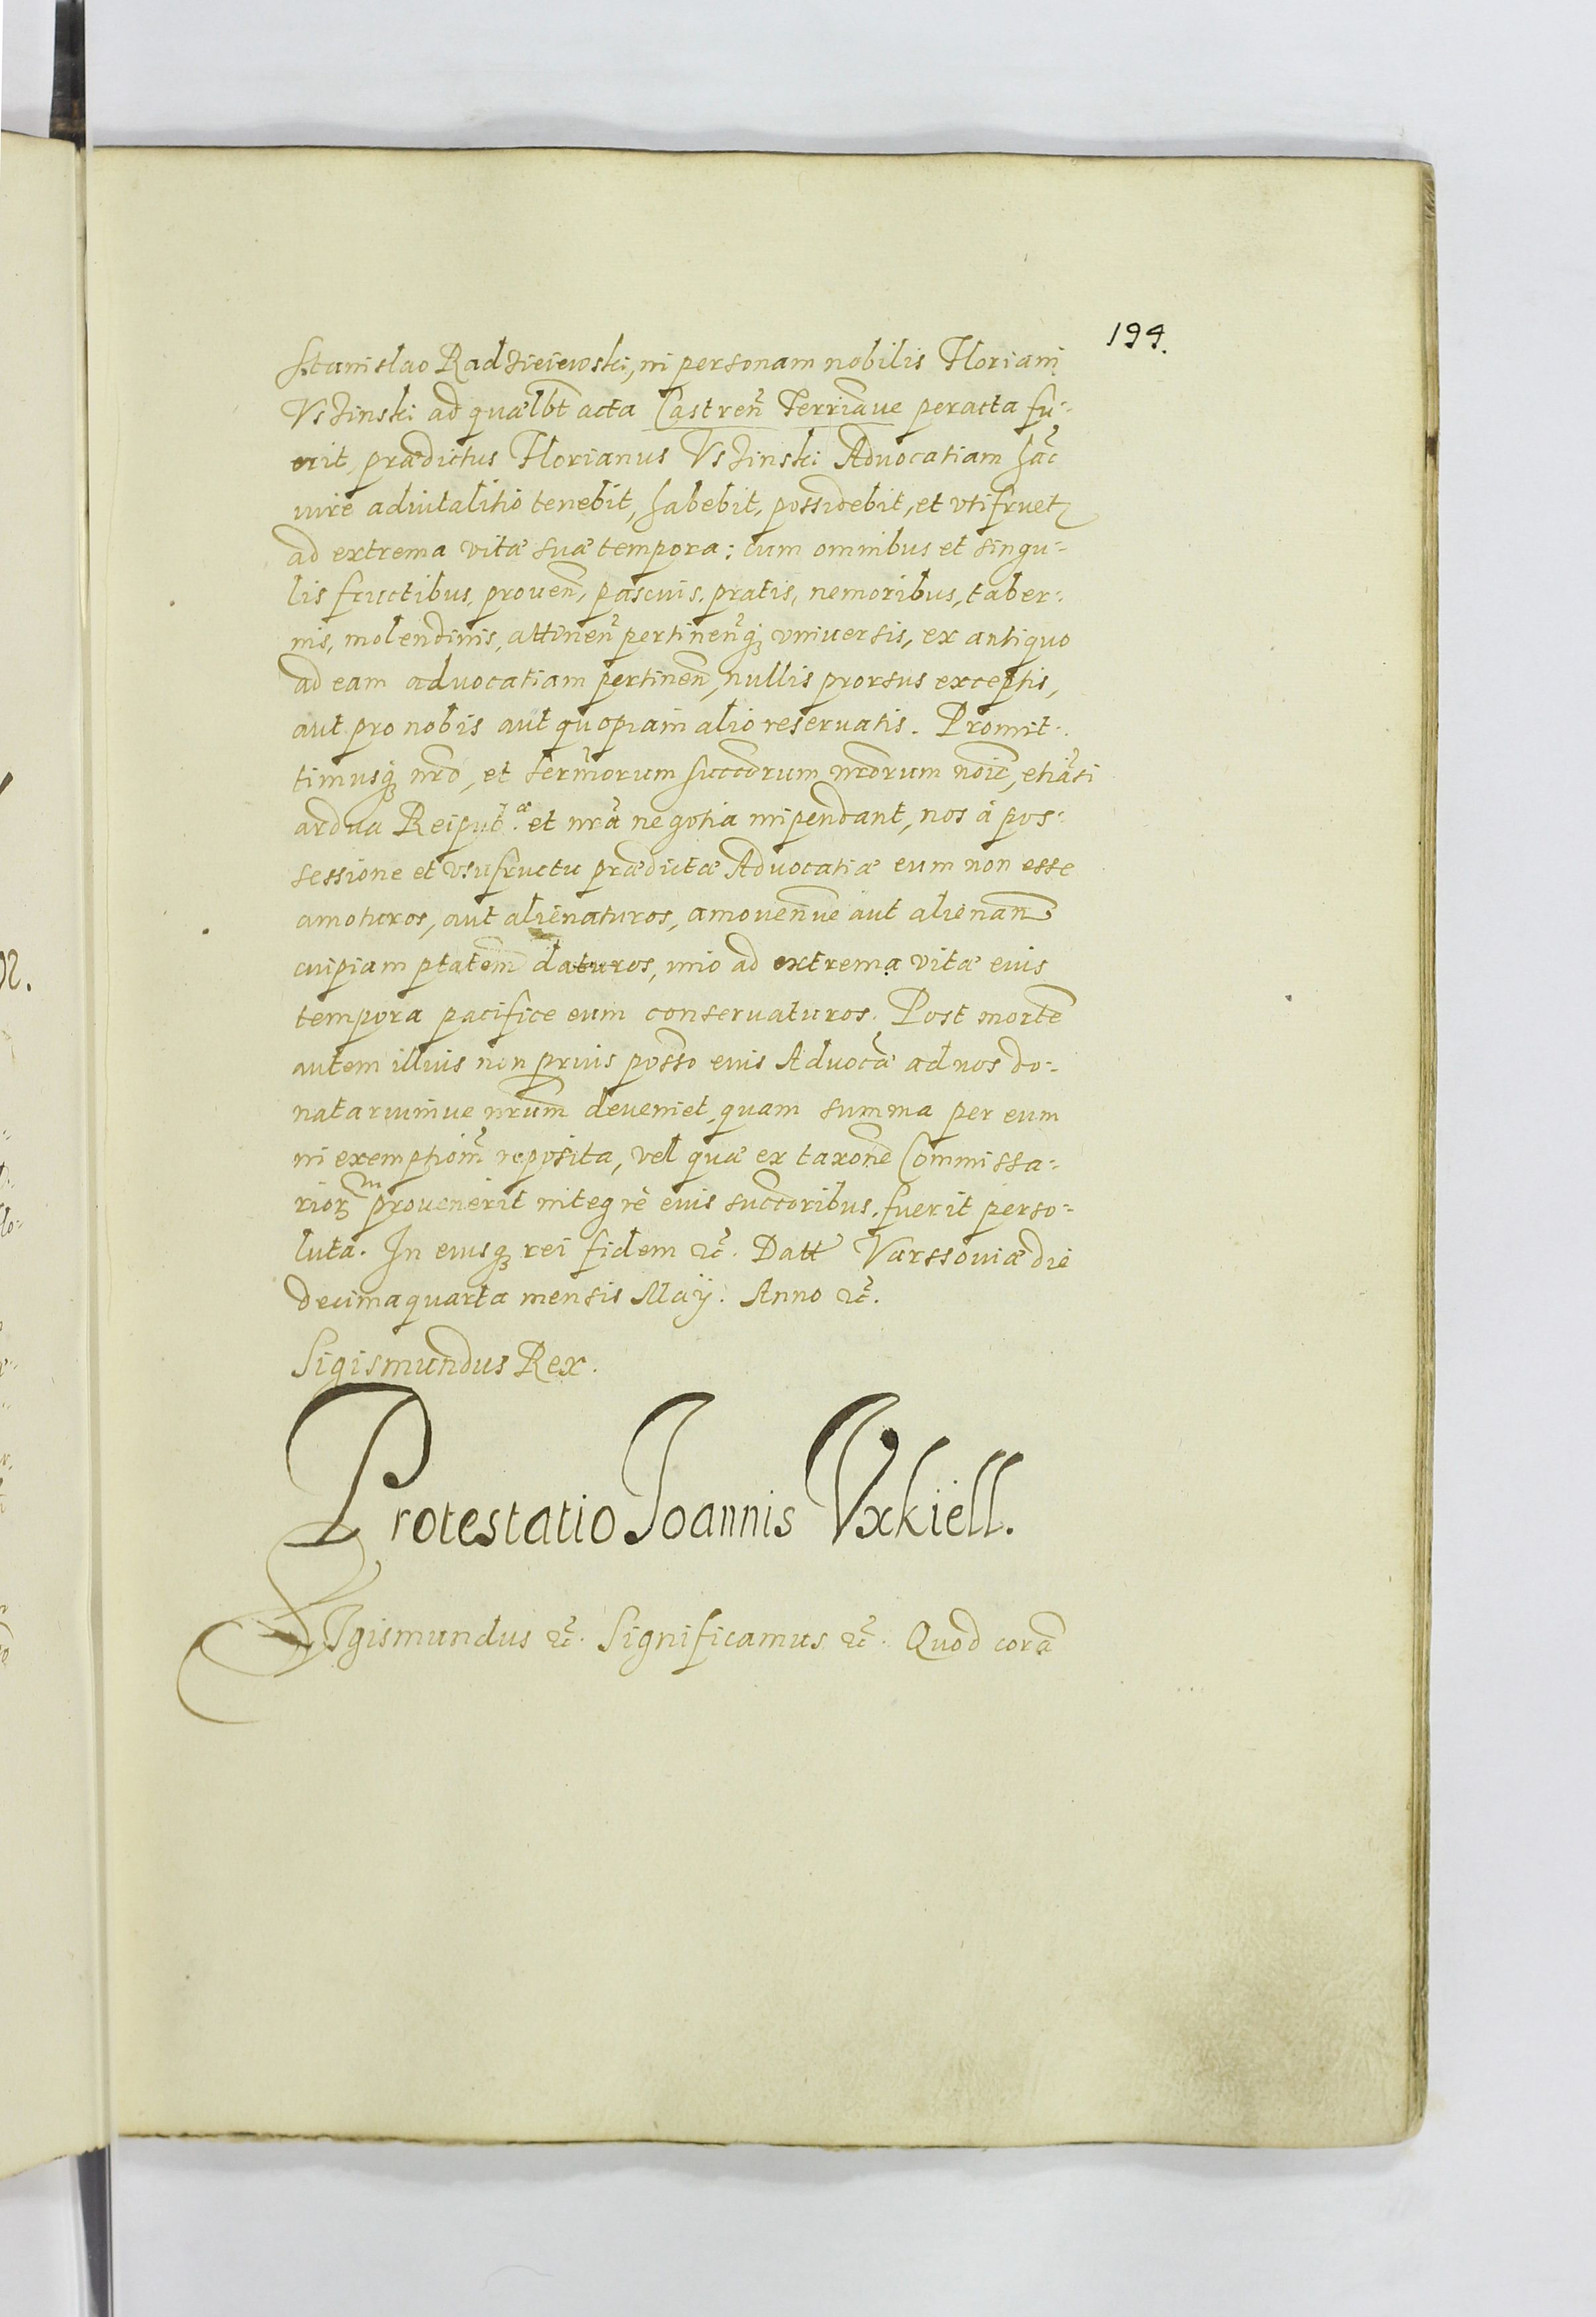 194.
Stanislao Radzieiewski, in personam nobilis Floriani
Vszinski ad quælbt acta Castreñ Terriãue peracta fu-
erit, prædictus Florianus Vszinski Advocatiam hãc
iure aduitalitio tenebit, habebit, possidebit, et vtifruet
ad extrema vitæ suæ tempora: cum omnibus et singu-
lis fructibus, proueñ, pascuis, pratis, nemoribus, taber-
nis, molendinis, attineñ pertineñq; vniuersis, ex antiquo
ad eam advocatiam pertineñ, nullis prorsus exceptis,
aut pro nobis aut quopiam alio reseruatis. Promit-
timusq; nrõ, et sermorum succõrum nrõrum noie, etiã si
ardua Reipub.æ et nrã negotia inpendant, nos à pos-
sessione et vsufructu prædictæ Advocatiæ eum non esse
amoturos, aut alienaturos, amouenđue aut alienanđ
cuipiam ptatem daturos, imo ad extrema vitæ eius
tempora pacifice eum conseruaturos. Post mortẽ
autem illius non prius posso eius Advocã ad nos do-
natariumue nrum deueniet, quam summa per eum
in exemptiom reposita, vel quæ ex taxone Commissa-
riorum prouenerit integrè eius succoribus fuerit perso-
luta. In eiusq; rei fidem etc. Datt Varssouiæ die
decimaquarta mensis Maÿ. Anno etc.
Sigismundus Rex.
Protestatio Joannis Vxkiell.
Sigismundus etc. Significamus etc. Quod corã